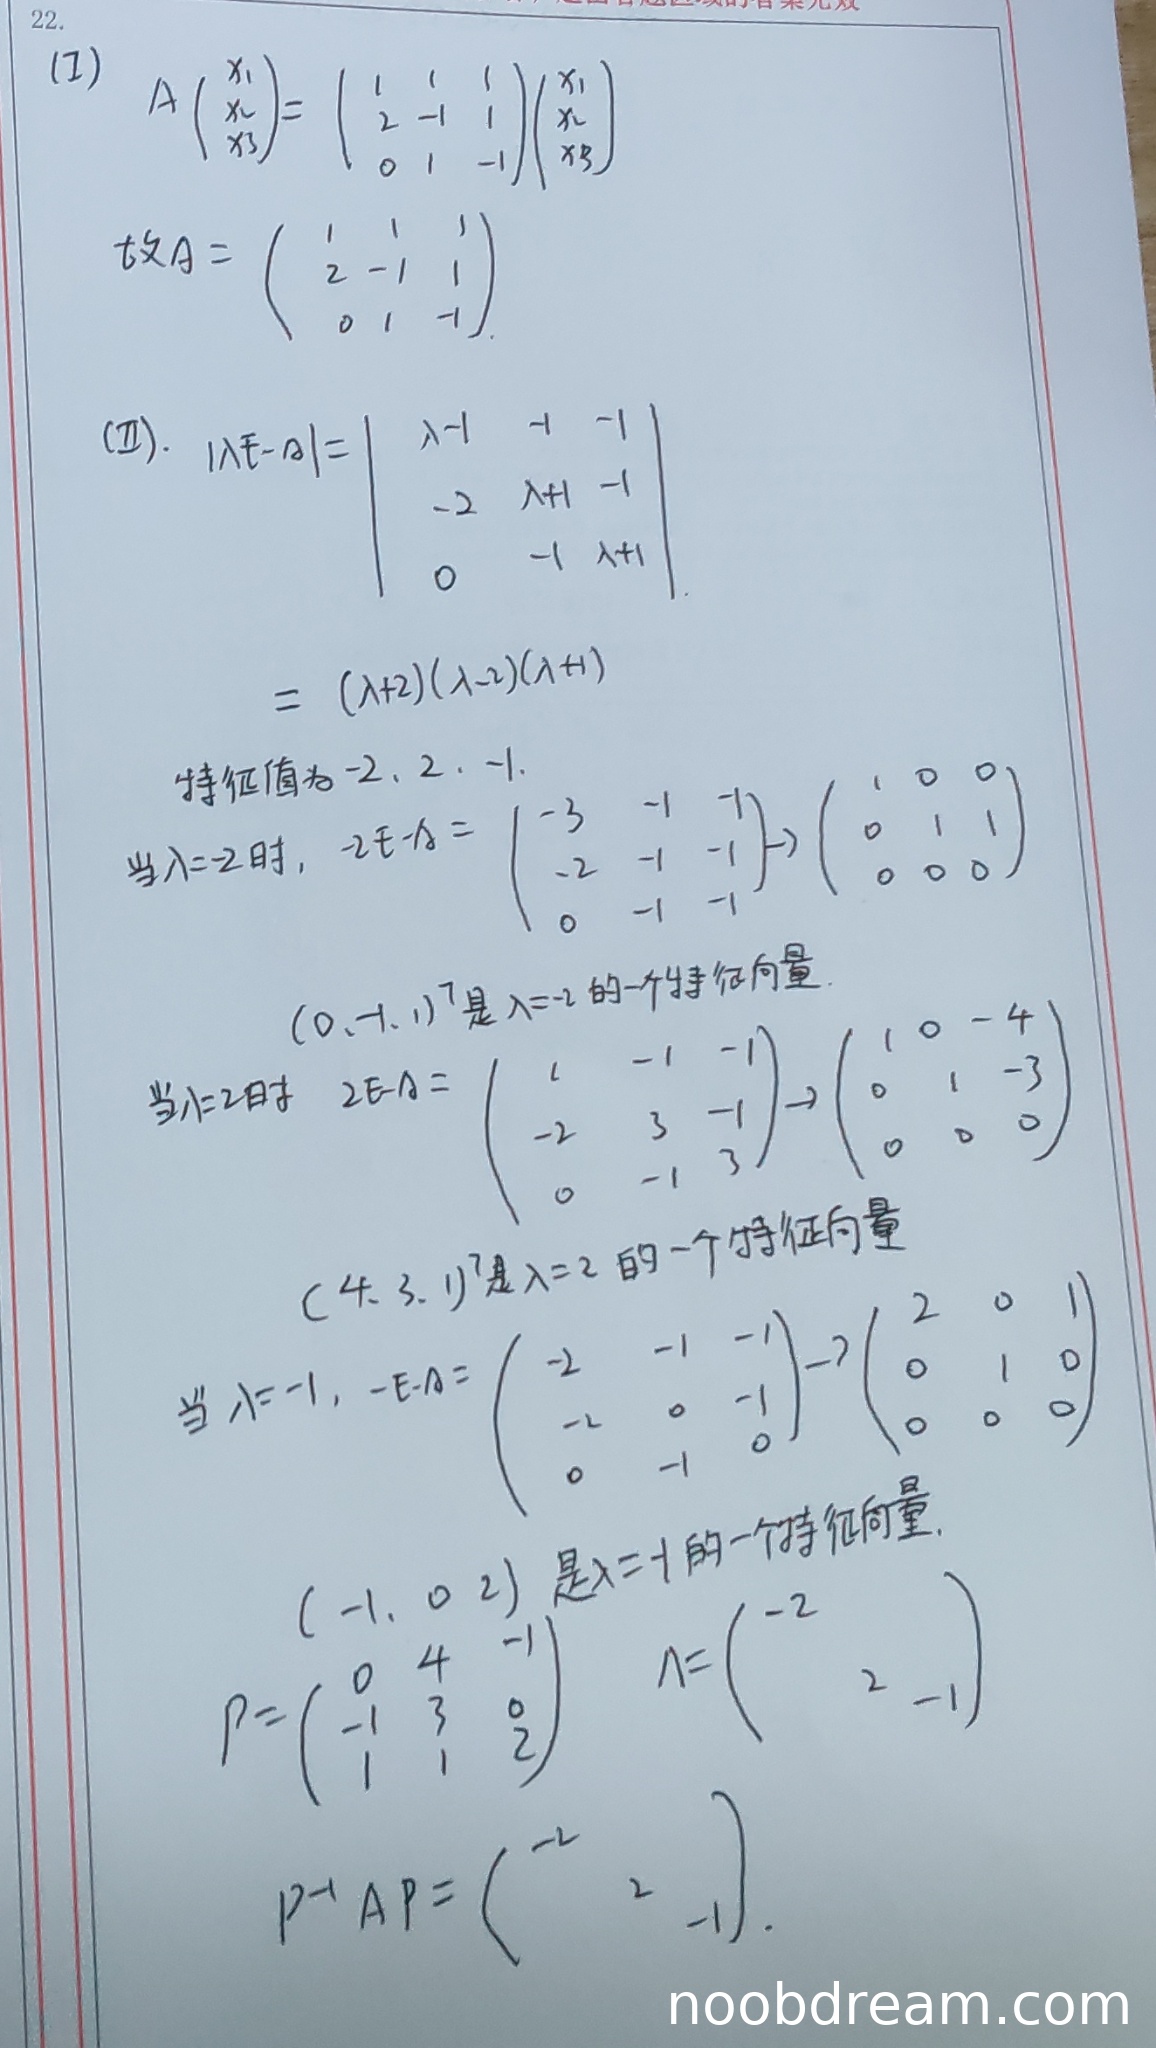 22.
(I) A (x1 x2 x3) = (1 1 1
2 -1 1
0 1 -1) (x1 x2 x3)
故A = (1 1 1
2 -1 1
0 1 -1).
(II). |λE-A| = | λ-1 -1 -1
-2 λ+1 -1
0 -1 λ+1 |.
= (λ+2)(λ-2)(λ+1)
特征值为 -2、2、-1.
当λ=-2时, -2E-A = (-3 -1 -1
-2 -1 -1
0 -1 -1) → (1 0 0
0 1 1
0 0 0)
(0、-1、1)ᵀ是λ=-2的一个特征向量.
当λ=2时 2E-A = (1 -1 -1
-2 3 -1
0 -1 3) → (1 0 -4
0 1 -3
0 0 0)
(4、3、1)ᵀ是λ=2的一个特征向量
当λ=-1, -E-A = (-2 -1 -1
-2 0 -1
0 -1 0) → (2 0 1
0 1 0
0 0 0)
(-1、0 2) 是λ=-1的一个特征向量.
P = (0 4 -1
-1 3 0
1 1 2) Λ = (-2
2
-1)
P⁻¹AP = (-2
2
-1).
noobdream.com